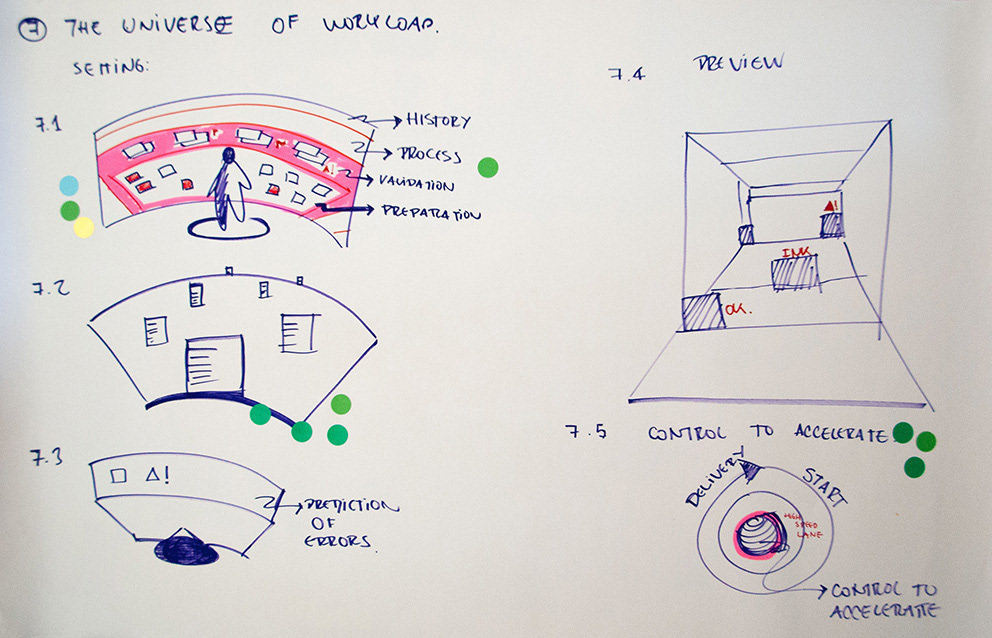 7 THE UNIVERSE OF WORKLOAD.
SETTING:
7.1
HISTORY
PROCESS
VALIDATION
PREPARATION
!
7.2
7.3
!
PREDICTION
OF
ERRORS.
7.4 PREVIEW
!
INK
OK.
7.5 CONTROL TO ACCELERATE
DELIVERY
START
HIGH
SPEED
LANE
CONTROL TO
ACCELERATE